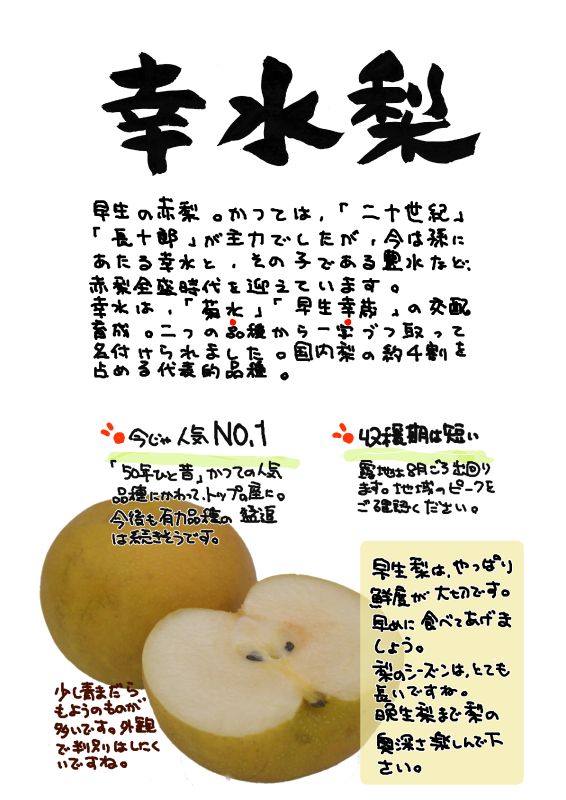 幸水梨
早生の赤梨。かつては、「二十世紀」
「長十郎」が主力でしたが、今は孫に
あたる幸水と、その子である豊水など、
赤梨全盛時代を迎えています。
幸水は、「菊水」「早生幸蔵」の交配
育成。二つの品種から一字づつ取って
名付けられました。国内梨の約4割を
占める代表的品種。
今じゃ人気NO.1
「50年ひと昔」かつての人気
品種にかわって、トップの座に。
今後も有力品種の猛追
は続きそうです。
収穫期は短い
露地は8月ごろ出回り
ます。地域のピークを
ご確認ください。
早生梨は、やっぱり
鮮度が大切です。
早めに食べてあげま
しょう。
梨のシーズンは、とても
長いですね。
晩生梨まで梨の
奥深さ楽しんで下
さい。
少し青まだら
もようのものが
多いです。外観
で判別はしにく
いですね。